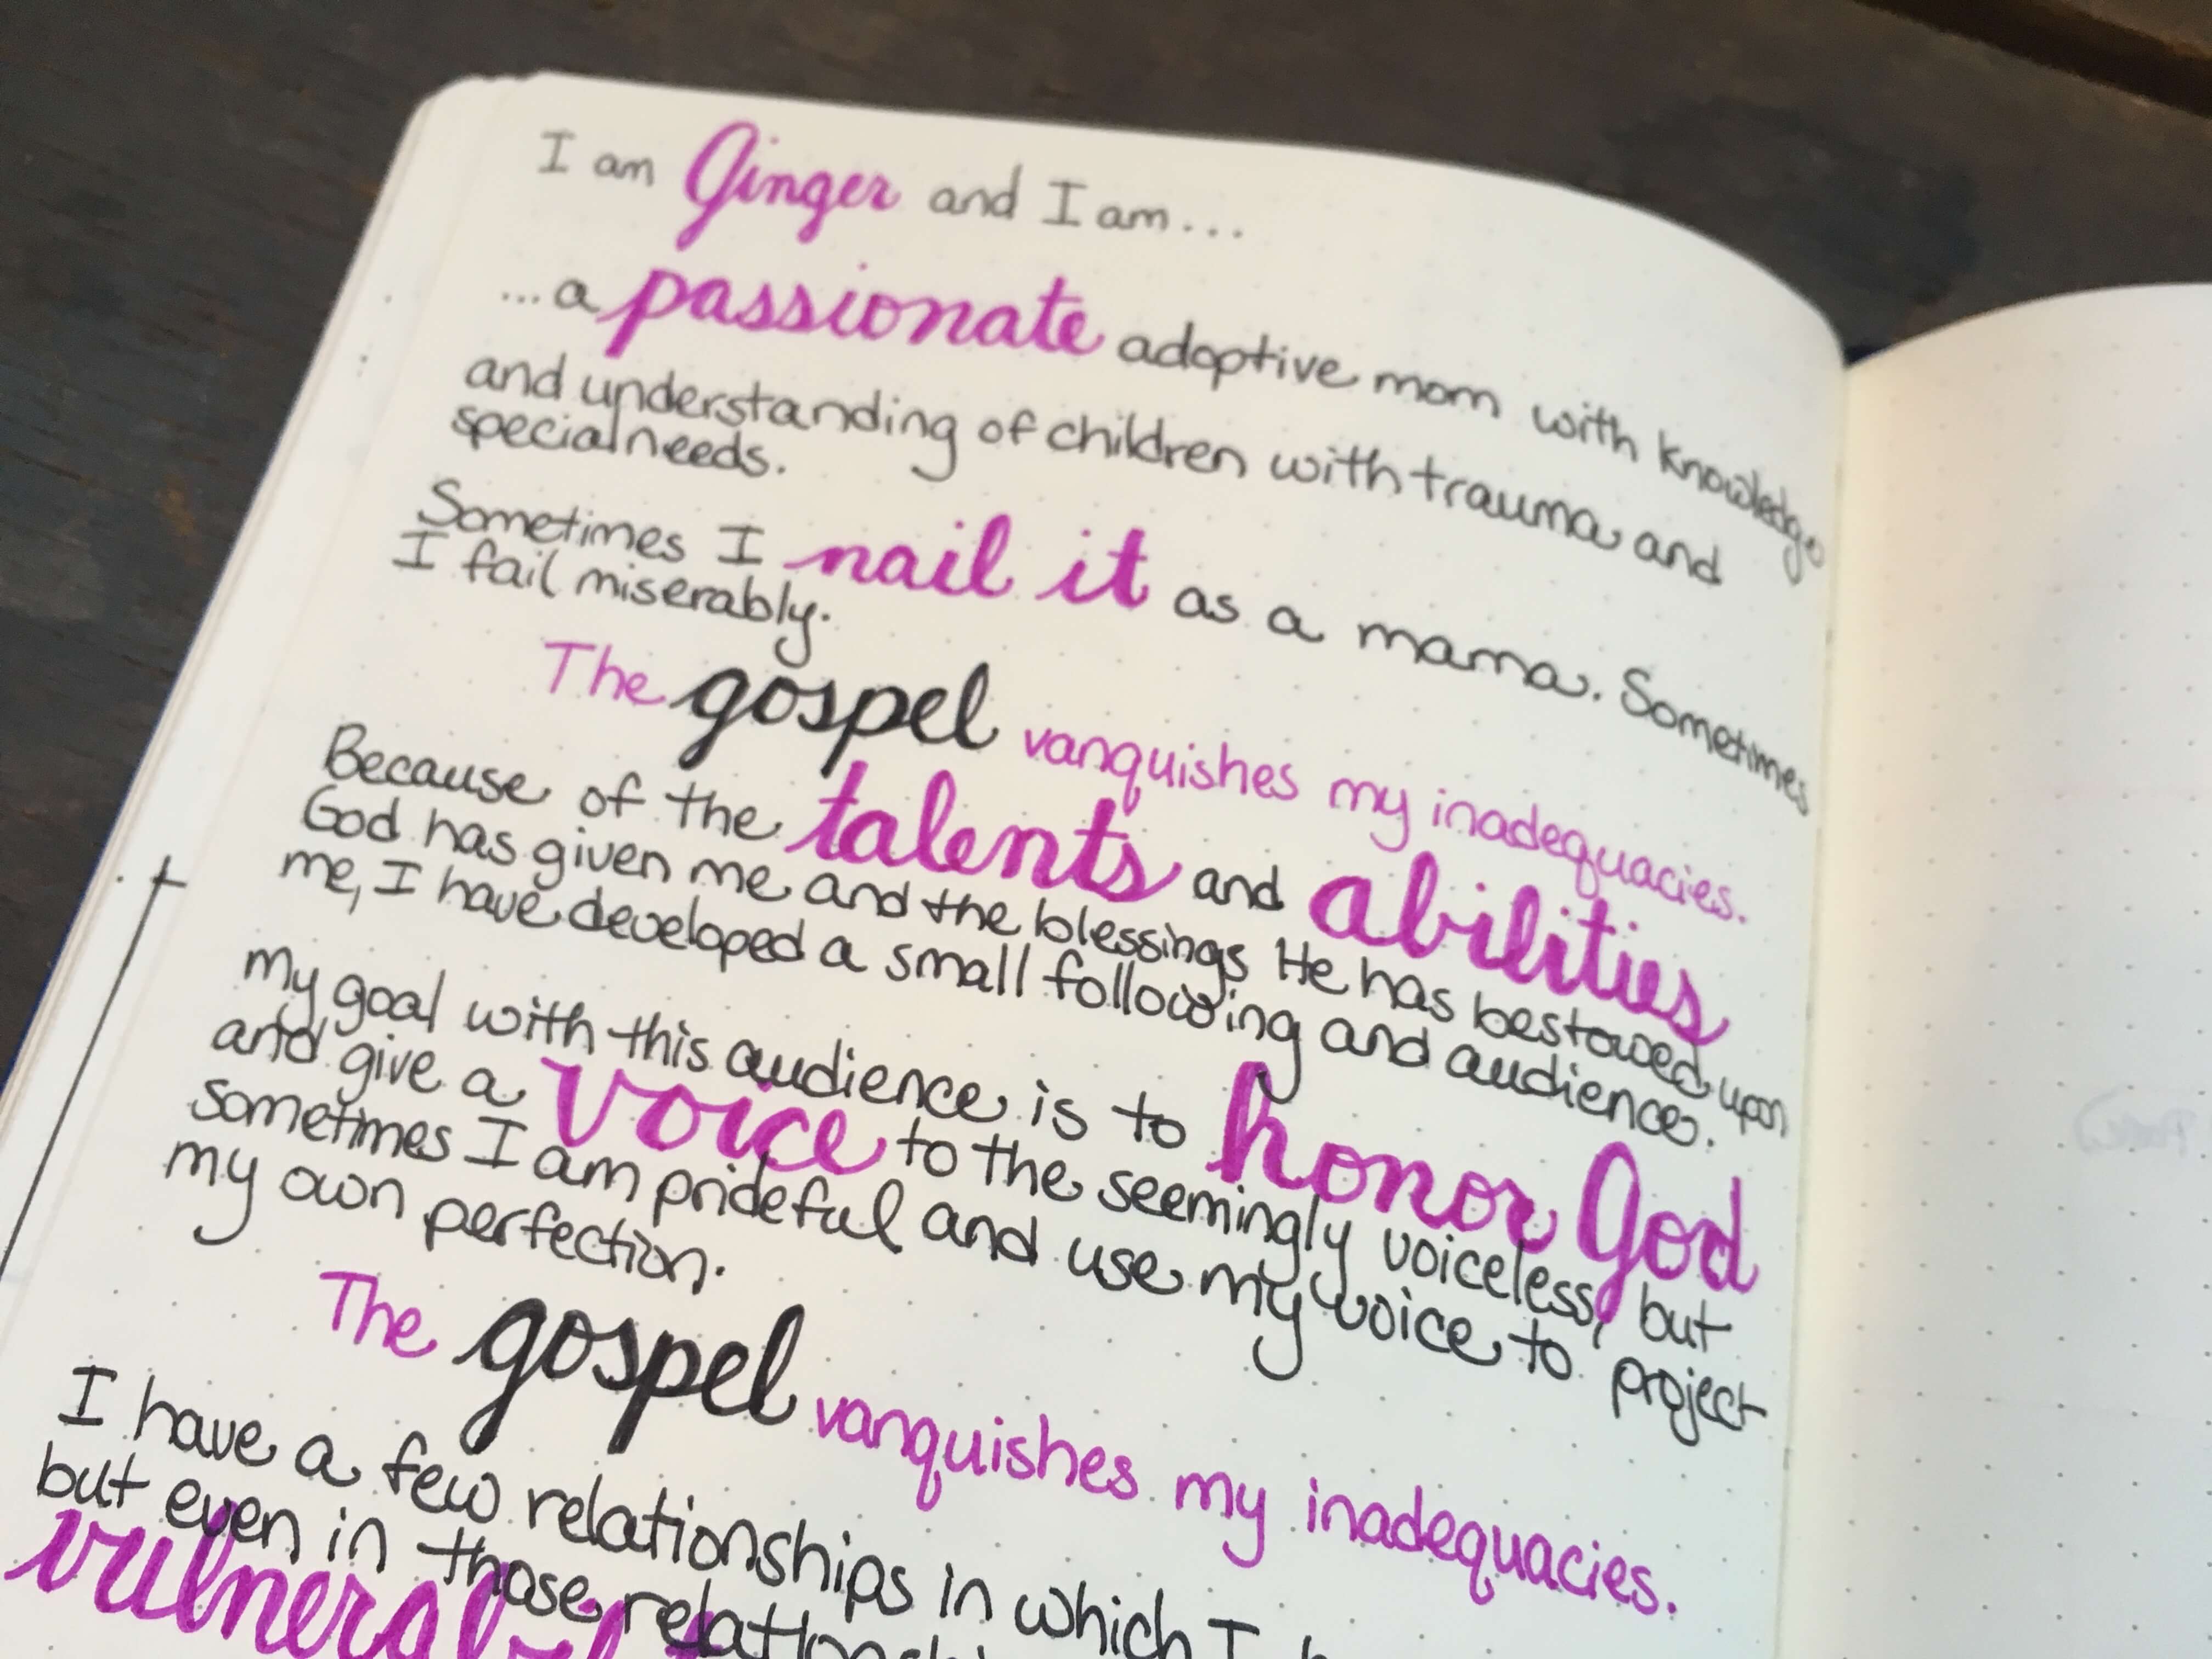 I am Ginger and I am...
...a passionate adoptive mom with knowledge
and understanding of children with trauma and
special needs.
Sometimes I nail it as a mama. Sometimes
I fail miserably.
The gospel vanquishes my inadequacies.
Because of the talents and abilities
God has given me and the blessings He has bestowed upon
me, I have developed a small following and audience.
My goal with this audience is to honor God
and give a voice to the seemingly voiceless, but
sometimes I am prideful and use my voice to project
my own perfection.
The gospel vanquishes my inadequacies.
I have a few relationships in which I
but even in those